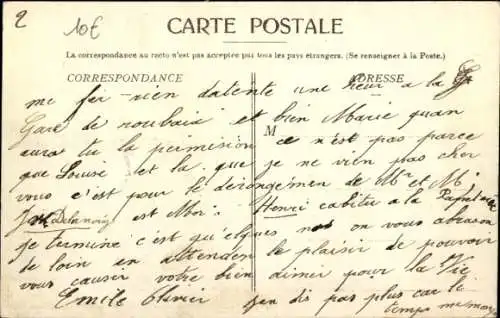 2
10€
CARTE POSTALE
La correspondance au recto n'est pas acceptée par tous les pays étrangers. (Se renseigner à la Poste.)
CORRESPONDANCE
ADRESSE
M
me fer rien datente une heur a la
Gare de roubaix et bien Marie quan
aura tu la permision ce n'est pas parce
que Louise et la que je ne vien pas cher
vous c'est pour le derongemen de Mr et Me
Delannoy est Moi Henri cabitu a la
je termine c'est quelques on vous
de loin en attenden le plaisir de pouvoir
vous causir votre bien aimer pour la Vie
Emile Olivier j'en dis pas plus car le
temps me